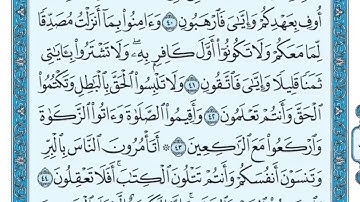 أُوفِ بِعَهْدِكُمْ وَإِيَّٰىَ فَٱرْهَبُونِ ٤٠ وَءَامِنُوا۟ بِمَآ أَنزَلْتُ مُصَدِّقًا
لِّمَا مَعَكُمْ وَلَا تَكُونُوٓا۟ أَوَّلَ كَافِرٍۭ بِهِۦ ۖ وَلَا تَشْتَرُوا۟ بِـَٔايَٰتِى
ثَمَنًا قَلِيلًا وَإِيَّٰىَ فَٱتَّقُونِ ٤١ وَلَا تَلْبِسُوا۟ ٱلْحَقَّ بِٱلْبَٰطِلِ وَتَكْتُمُوا۟
ٱلْحَقَّ وَأَنتُمْ تَعْلَمُونَ ٤٢ وَأَقِيمُوا۟ ٱلصَّلَوٰةَ وَءَاتُوا۟ ٱلزَّكَوٰةَ
وَٱرْكَعُوا۟ مَعَ ٱلرَّٰكِعِينَ ٤٣ ۞ أَتَأْمُرُونَ ٱلنَّاسَ بِٱلْبِرِّ
وَتَنسَوْنَ أَنفُسَكُمْ وَأَنتُمْ تَتْلُونَ ٱلْكِتَٰبَ ۚ أَفَلَا تَعْقِلُونَ ٤٤